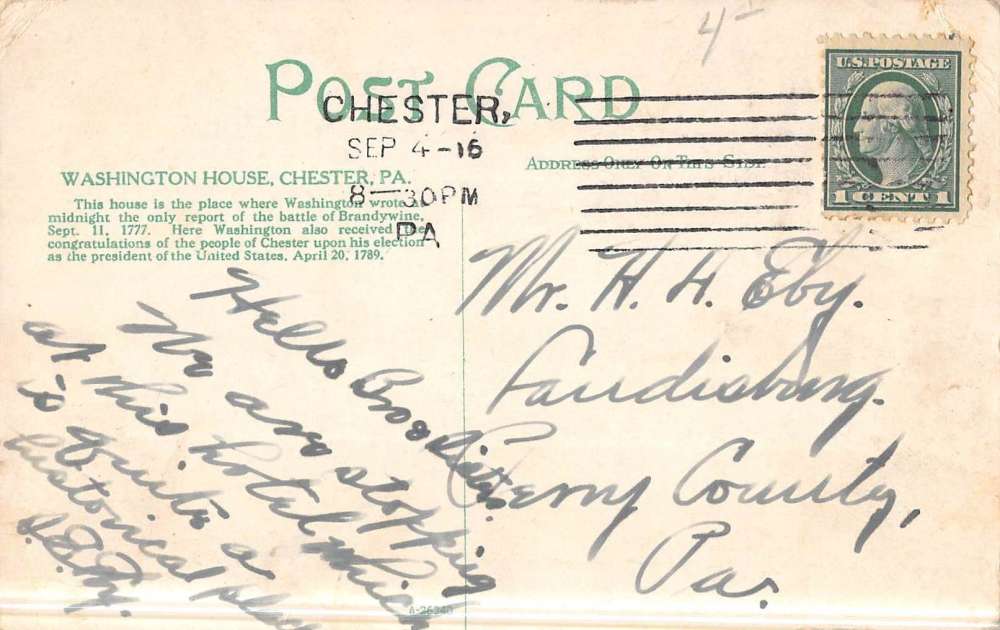 4-
POST CARD
U.S. POSTAGE
1 CENT 1
CHESTER,
SEP 4-16
8-30PM
PA
ADDRESS ONLY ON THIS SIDE.
WASHINGTON HOUSE, CHESTER, PA.
This house is the place where Washington wrote at
midnight the only report of the battle of Brandywine,
Sept. 11, 1777. Here Washington also received the
congratulations of the people of Chester upon his election
as the president of the United States, April 20, 1789.
Hello Bro & Sister.
We are stopping
at this hotel which
is quite a
historical place
S. Eby.
Mr. H. H. Eby.
Landisburg.
Perry County,
Pa.
A-26240